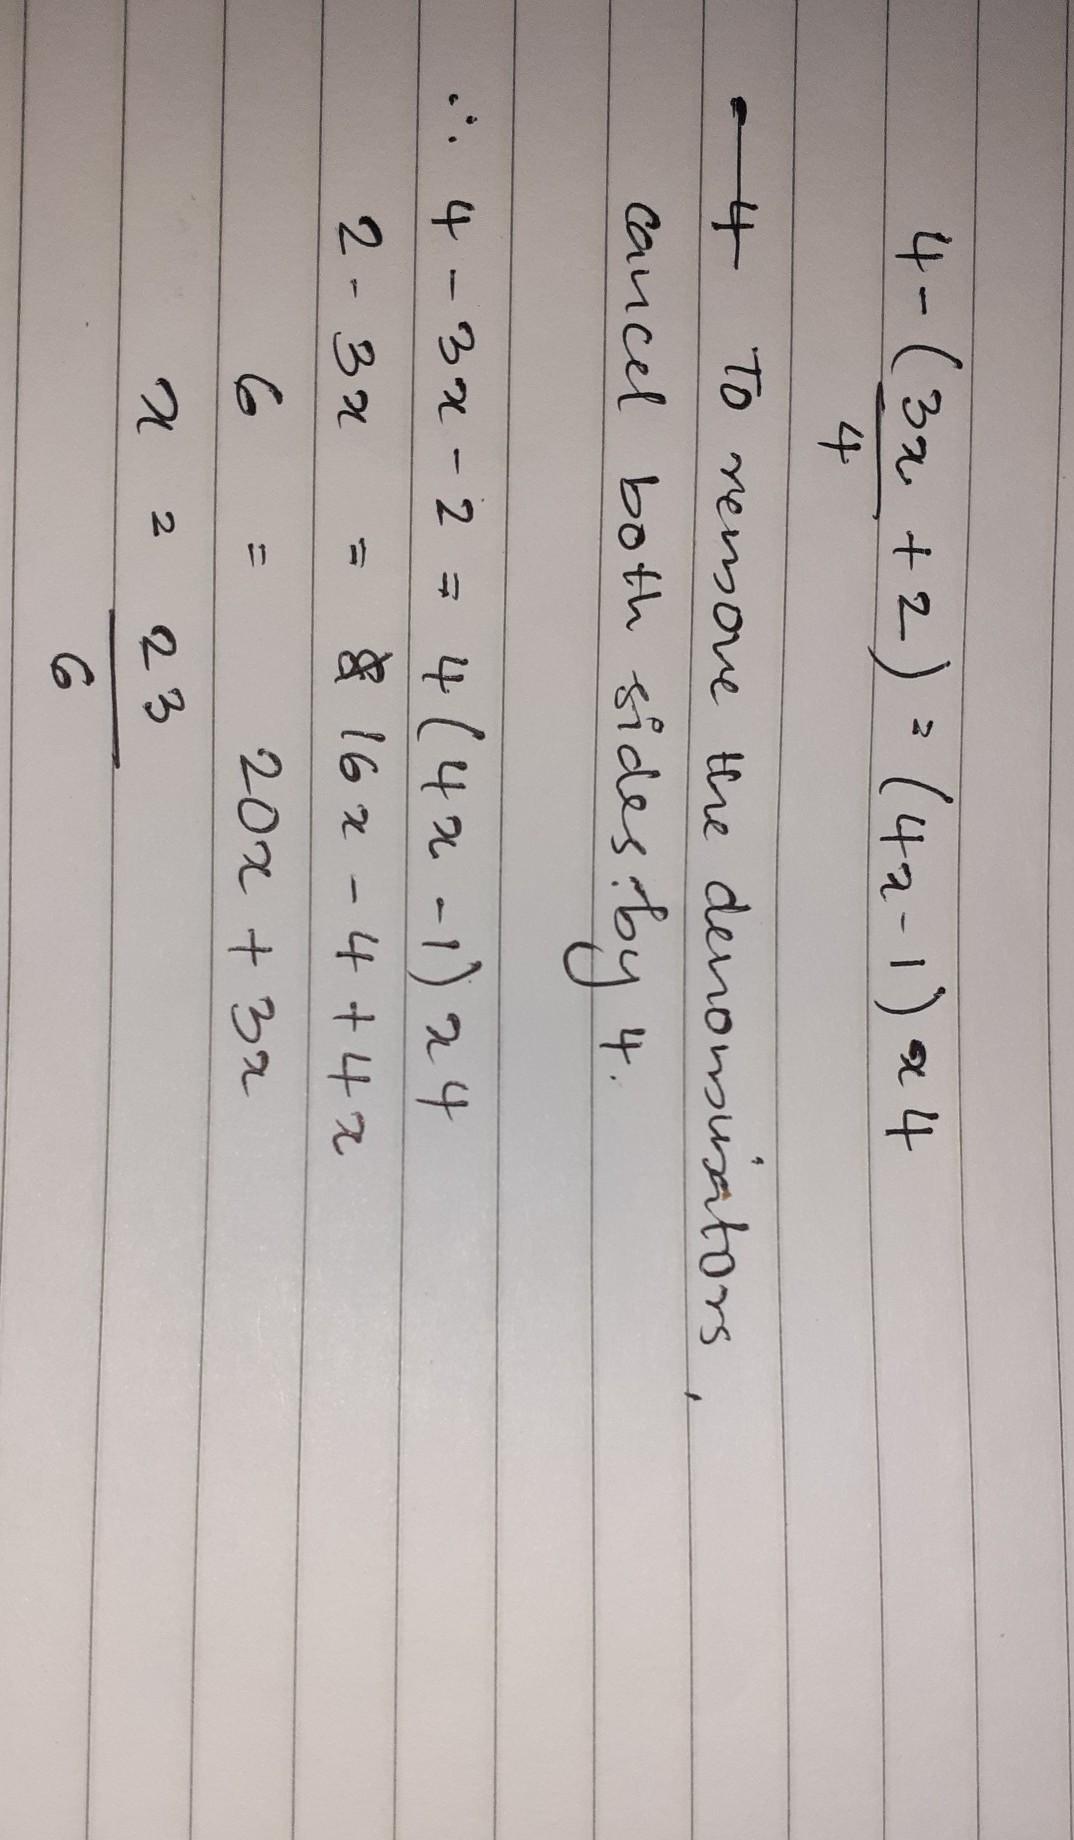 4 - (3x + 2) = (4x - 1) x 4
4
4 To remove the denominators,
cancel both sides by 4.
∴ 4 - 3x - 2 = 4(4x - 1) x 4
2 - 3x = 16x - 4 + 4x
6 = 20x + 3x
x = 23
6